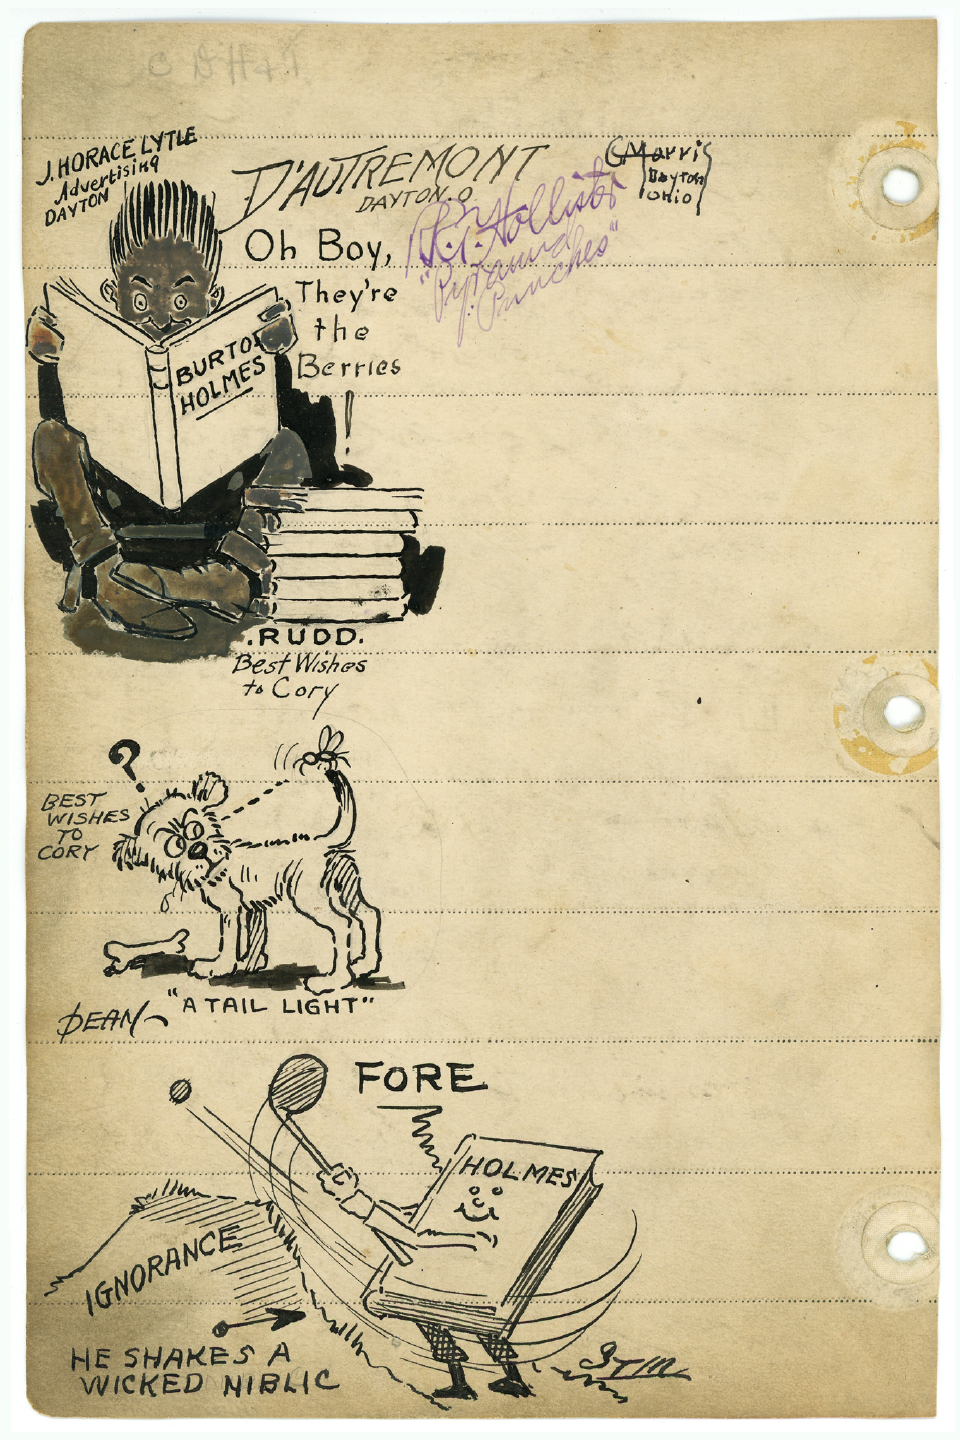 J. HORACE LYTLE
Advertising
DAYTON
D'AUTREMONT
DAYTON. O
GMorris
Dayton
Ohio
Hollister
"Pyramid
Punches"
Oh Boy,
They're
the
Berries
!
BURTON
HOLMES
.RUDD.
Best Wishes
to Cory
?
BEST
WISHES
TO
CORY
"A TAIL LIGHT"
DEAN
FORE
HOLMES
IGNORANCE
HE SHAKES A
WICKED NIBLIC